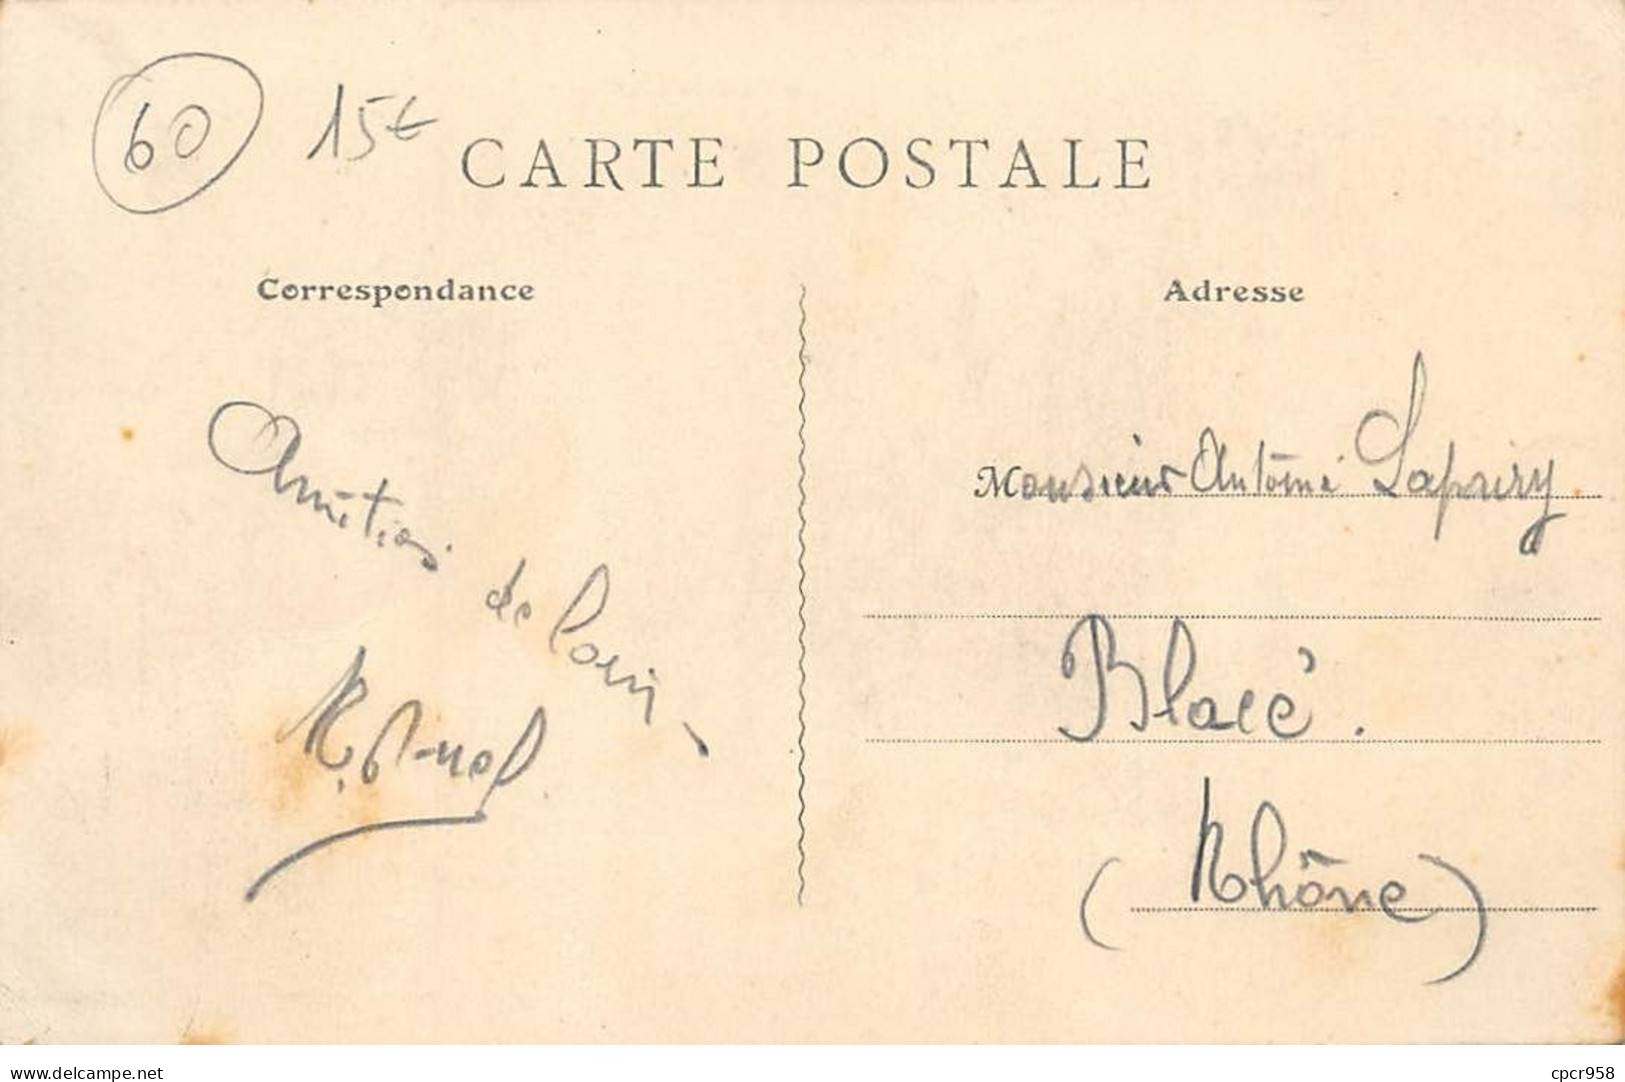 60 15€
CARTE POSTALE
Correspondance
Adresse
Amitiés de
Monsieur Antoine
Blacé.
(Rhône)
www.delcampe.net
cpcr958